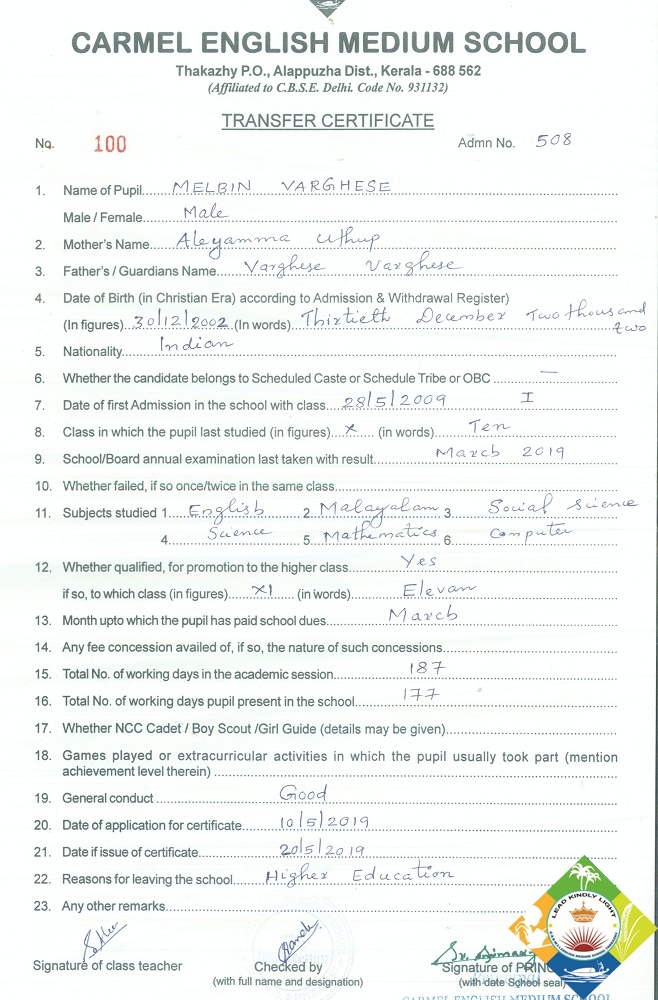 CARMEL ENGLISH MEDIUM SCHOOL
Thakazhy P.O., Alappuzha Dist., Kerala - 688 562
(Affiliated to C.B.S.E. Delhi. Code No. 931132)
TRANSFER CERTIFICATE
No. 100 Admn No. 508
1. Name of Pupil MELBIN VARGHESE
Male / Female Male
2. Mother's Name Aleyamma Uthup
3. Father's / Guardians Name Varghese Varghese
4. Date of Birth (in Christian Era) according to Admission & Withdrawal Register)
(In figures) 30/12/2002 (In words) Thirtieth December Two thousand
two
5. Nationality Indian
6. Whether the candidate belongs to Scheduled Caste or Schedule Tribe or OBC —
7. Date of first Admission in the school with class 28/5/2009 I
8. Class in which the pupil last studied (in figures) X (in words) Ten
9. School/Board annual examination last taken with result March 2019
10. Whether failed, if so once/twice in the same class
11. Subjects studied 1. English 2. Malayalam 3. Social science
4. Science 5. Mathematics 6. Computer
12. Whether qualified, for promotion to the higher class Yes
if so, to which class (in figures) XI (in words) Elevan
13. Month upto which the pupil has paid school dues March
14. Any fee concession availed of, if so, the nature of such concessions
15. Total No. of working days in the academic session 187
16. Total No. of working days pupil present in the school 177
17. Whether NCC Cadet / Boy Scout /Girl Guide (details may be given)
18. Games played or extracurricular activities in which the pupil usually took part (mention
achievement level therein)
19. General conduct Good
20. Date of application for certificate 10/5/2019
21. Date if issue of certificate 20/5/2019
22. Reasons for leaving the school Higher Education
23. Any other remarks
Signature of class teacher Checked by Signature of PRINC
(with full name and designation) (with date School seal)
CARMEL ENGLISH MEDIUM SCHOOL
LEAD KINDLY LIGHT